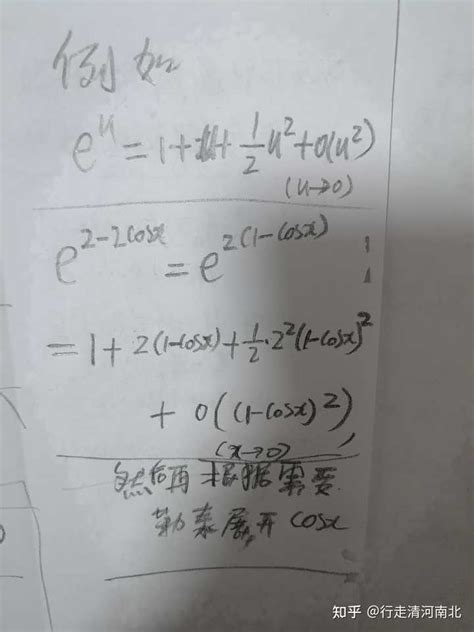 例如
e^u = 1+u+\frac{1}{2}u^2+o(u^2)
(u→0)
e^{2-2cosx} = e^{2(1-cosx)}
= 1+2(1-cosx)+\frac{1}{2}·2^2(1-cosx)^2
+ o((1-cosx)^2),
(x→0)
然后再根据需要
泰勒展开 cosx
知乎 @行走清河南北